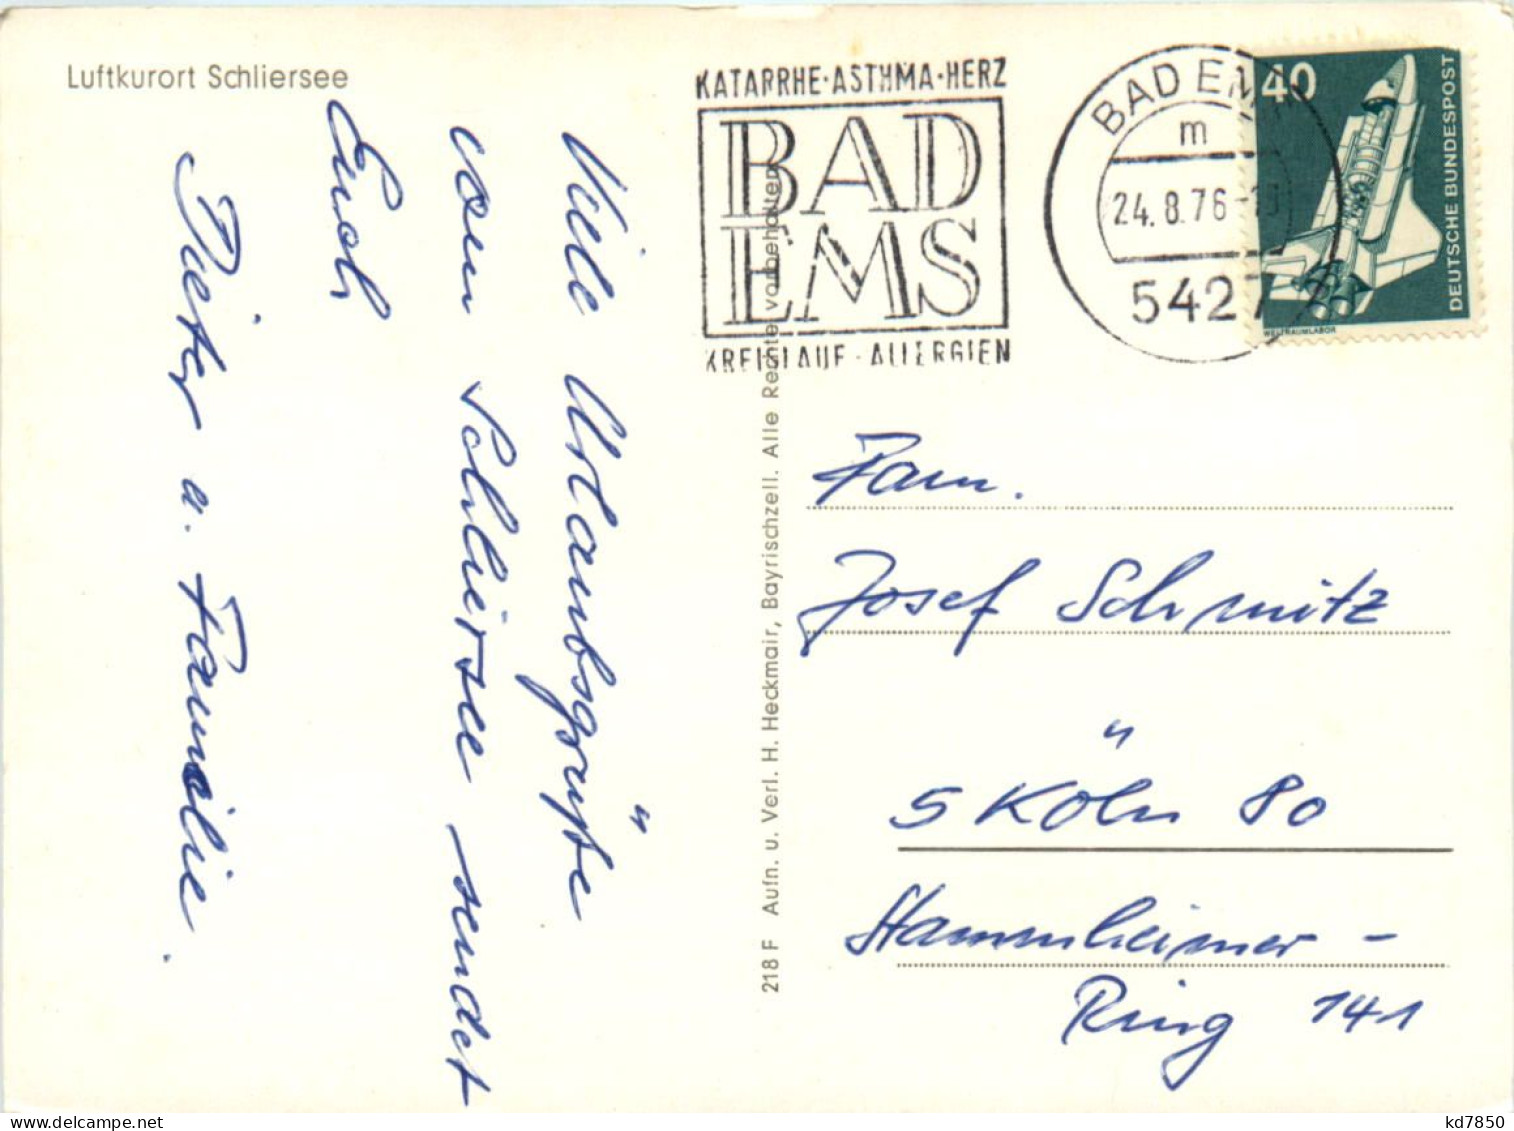 Luftkurort Schliersee
Viele Urlaubsgrüße
vom Schliersee sendet
Euch
Dieter u. Familie.
218 F Aufn. u. Verl. H. Heckmair, Bayrischzell. Alle Rechte vorbehalten
KATARRHE·ASTHMA·HERZ
BAD
EMS
KREISLAUF·ALLERGIEN
BAD EMS
m
24.8.76
5427
40
DEUTSCHE BUNDESPOST
WELTRAUMLABOR
Fam.
Josef Schmitz
5 Köln 80
Stammheimer-
Ring 141
kd7850